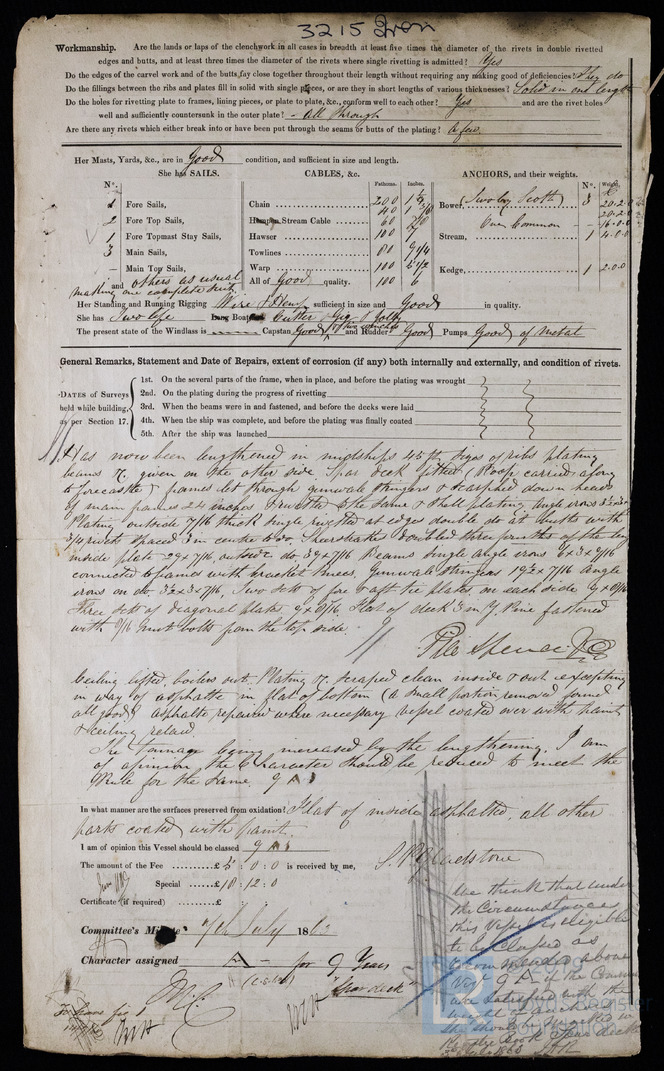 3215 Iron
Workmanship. Are the lands or laps of the clenchwork in all cases in breadth at least five times the diameter of the rivets in double rivetted
edges and butts, and at three times the diameter of the rivets where single rivetting is admitted? Yes
Do the edges of the carvel work and of the butts lay close together throughout their length without requiring any making good of deficiencies? They do
Do the fillings between the ribs and plates fill in solid with single pieces, or are they in short lengths of various thicknesses? Solid in one length
Do the holes for rivetting plate to frames, lining pieces, or plate to plate, &c., conform well to each other? Yes and are the rivet holes
well and sufficiently countersunk in the outer plate? - all through
Are there any rivets which either break into or have been put through the seams or butts of the plating? a few
Her Masts, Yards, &c., are in Good condition, and sufficient in size and length.
She has SAILS. CABLES, &c. ANCHORS, and their weights.
N°. Fathoms. Inches. N°. Weight.
1 Fore Sails, Chain 200 Bower, Two by Scott 3 20.2.0
2 Fore Top Sails, Hempen Stream Cable 60 One Common 16.0.0
1 Fore Topmast Stay Sails, Hawser 100 7 Stream, 1 4.0.0
3 Main Sails, Towlines 80
— Main Top Sails, Warp 100 5 1/2 Kedge, 1 2.0.0
and others as usual All of Good quality. 100 6
making one complete suit
Her Standing and Running Rigging Wire & Hemp sufficient in size and Good in quality.
She has Two life Long Boat Cutter Gig & Jolly
The present state of the Windlass is Capstan Good & two winches and Rudder Good Pumps Good of Metal
General Remarks, Statement and Date of Repairs, extent of corrosion (if any) both internally and externally, and condition of rivets.
DATES of Surveys held while building, as per Section 17.
1st. On the several parts of the frame, when in place, and before the plating was wrought
2nd. On the plating during the progress of rivetting
3rd. When the beams were in and fastened, and before the decks were laid
4th. When the ship was complete, and before the plating was finally coated
5th. After the ship was launched
Has now been lengthened in midships 45 ft sizes of ribs plating
beams &c. given on the other side Spar deck fitted (Poop carried along
to forecastle) frames let through gunwale stringers & scarphed down heads
of main frames 24 inches & rivetted to the same & shell plating, angle irons
Plating outside 7/16 thick single rivetted at edges double do at butts with
3/4 rivets spaced 3 in centre to do. Sheerstrakes doubled three fourths of the length
inside plate 29 x 7/16, outside do 39 x 7/16 Beams single angle irons 6 x 3 x 7/16
connected to frames with bracket knees, Gunwale stringers 19 1/2 x 7/16 angle
irons on do. Two sets of fore & aft tie plates on each side
three sets of diagonal plates Flat of deck 3 in Y. Pine fastened
with nut bolts from the top side.
Pile Spence & Co
Ceiling lifted, boilers out, Plating &c. scraped clean inside & out excepting
in way of asphalte in flat of bottom (a small portion removed found
all good) asphalte repaired where necessary vessel coated over with paint
& ceiling relaid.
The tonnage being increased by the lengthening, I am
of opinion the Character should be reduced to meet the
Rule for the same. 9 A 1
In what manner are the surfaces preserved from oxidation? Flat of inside asphalted, all other
parts coated with paint.
I am of opinion this Vessel should be classed 9 A 1
The amount of the Fee £5 : 0 : 0 is received by me,
Special £18 : 12 : 0
Certificate (if required) £ : :
Committee's Minute 7th July 186
Character assigned A - for 9 Years
"Spar deck"
We think that under
the Circumstances
this Vessel is eligible
to be Classed as
recommended above
9 A if the Committee
are satisfied with the
weight of anchors